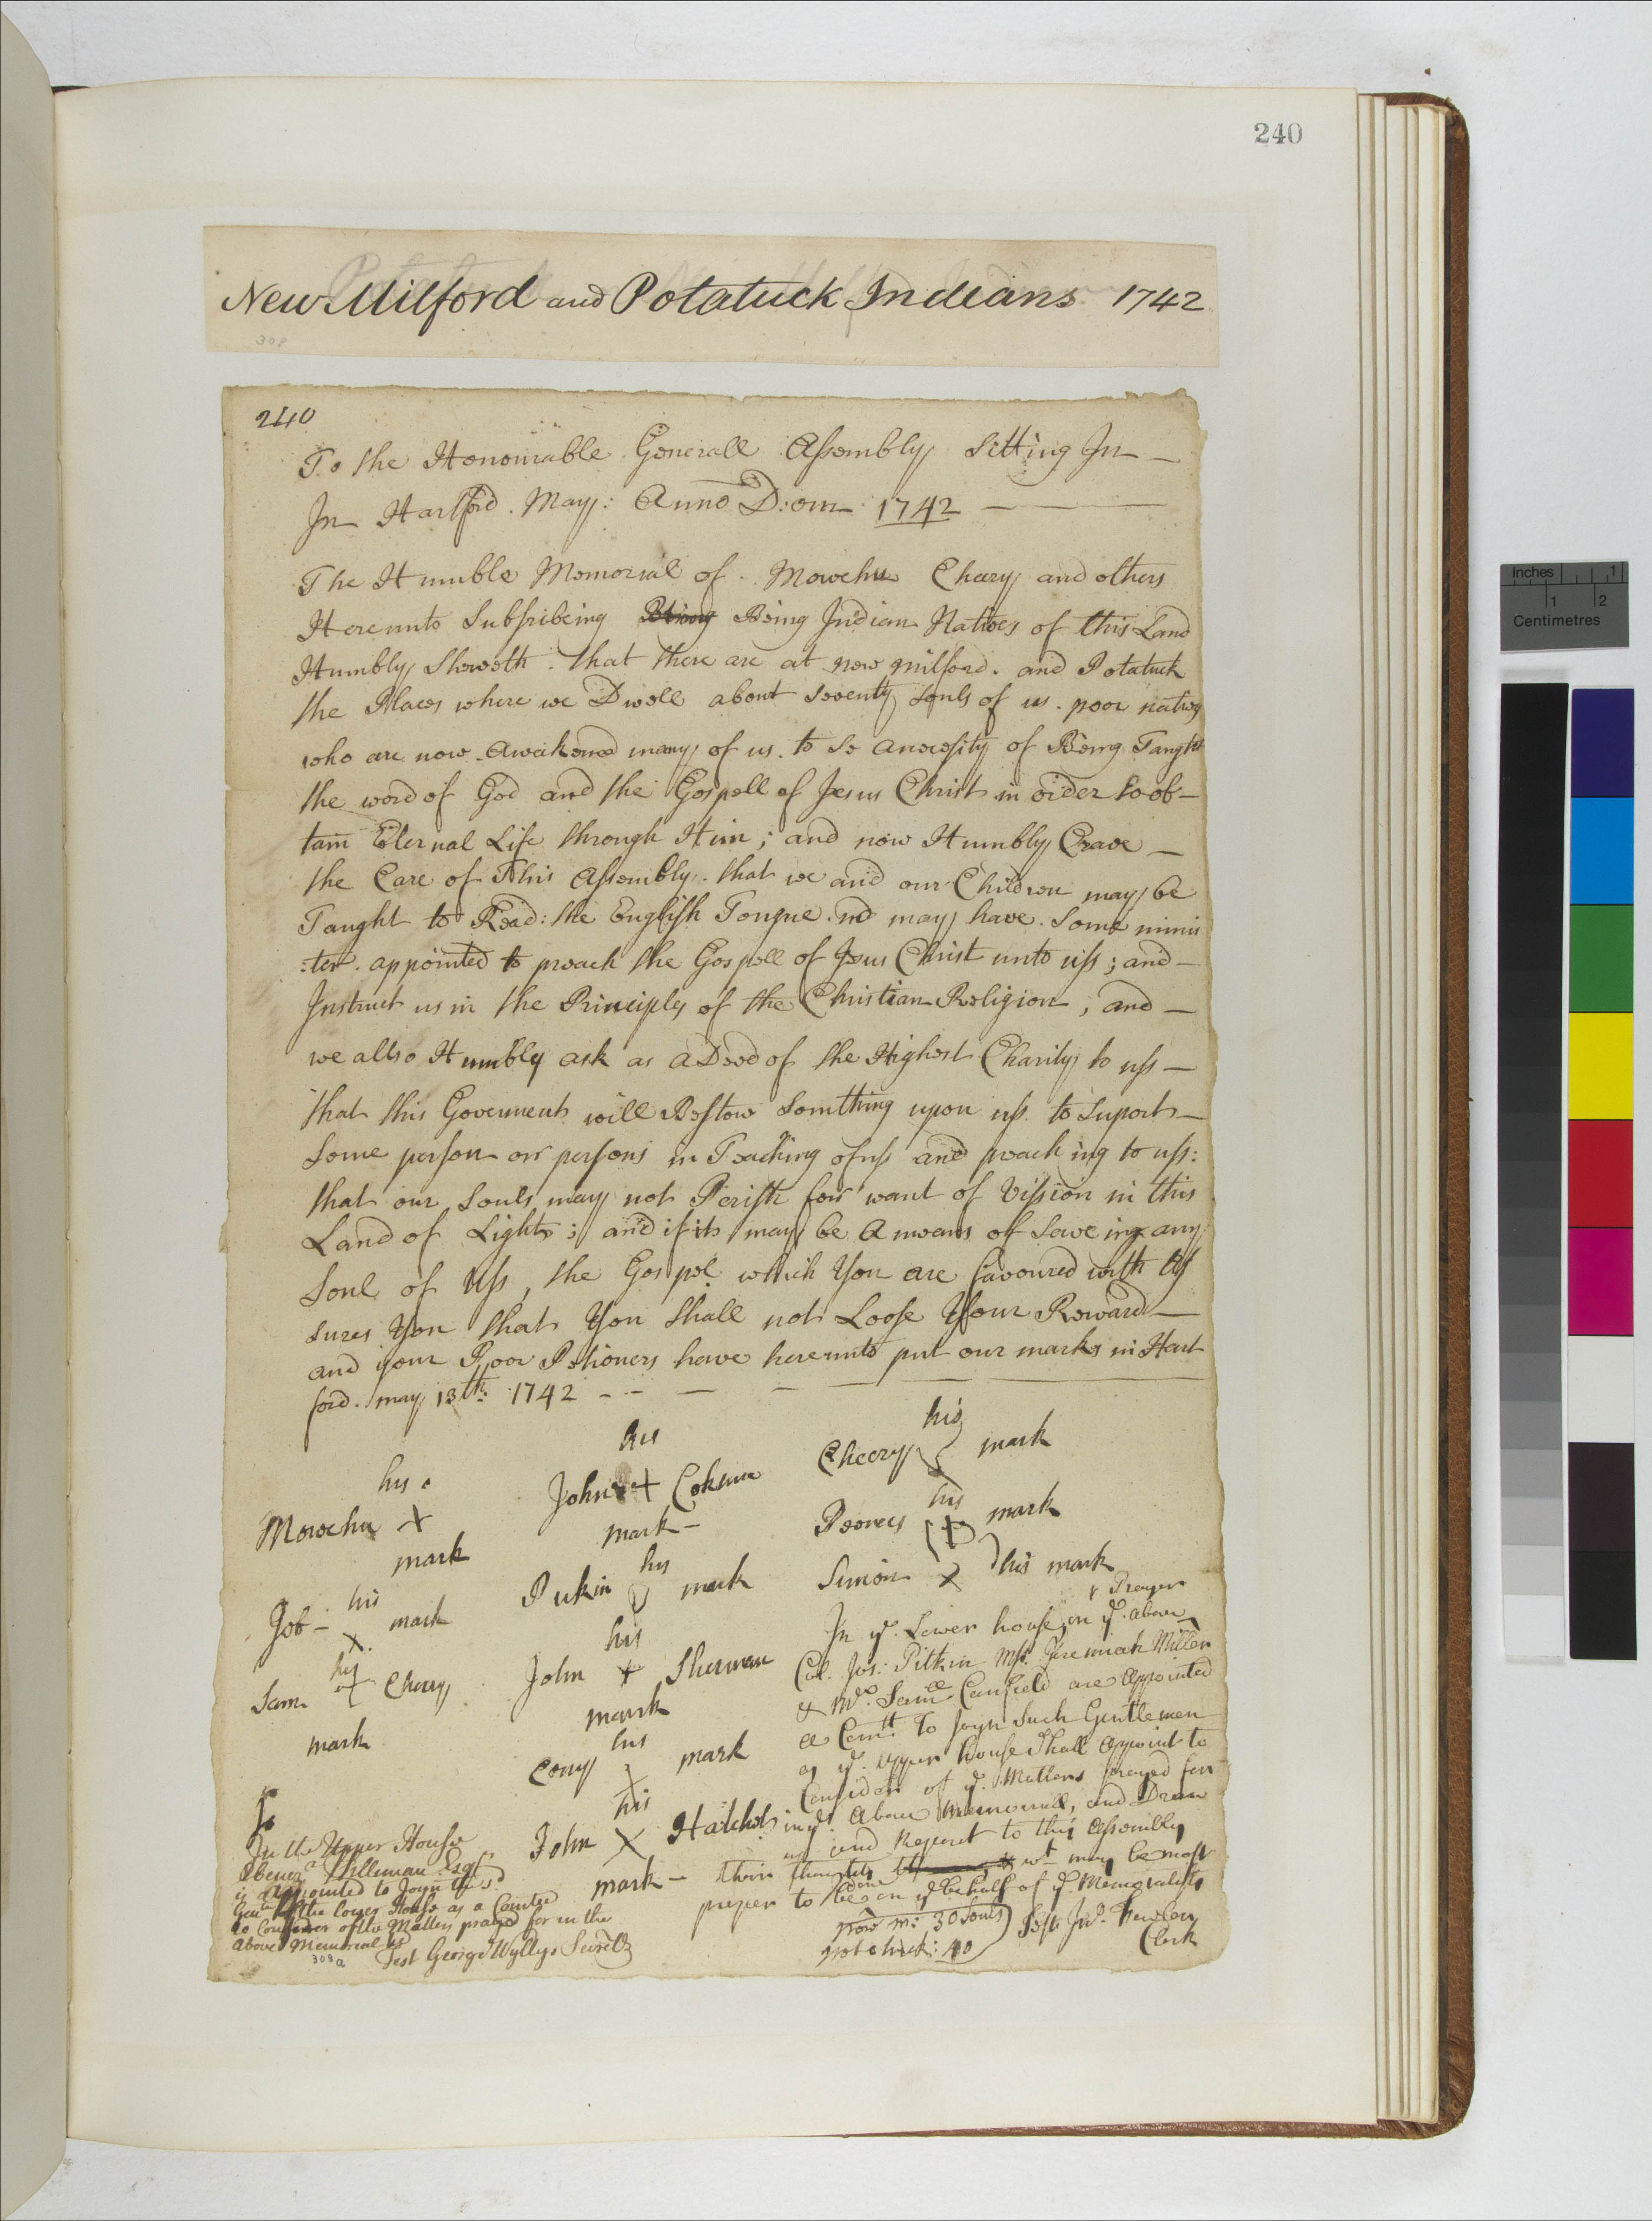 240
New Milford and Potatuck Indians 1742
308
240
To the Honourable Generall Assembly Sitting In
In Hartford. May: Anno D:om 1742
The Humble Memorial of Mowehu Cheery and others
Hereunto Subsribeing Being Being Indian Natives of this Land
Humbly Sheweth: that there are at new milford. and Potatuck
the Places where we Dwell about Seventy Souls of us. poor natives
who are now Awakened many of us. to se a necesity of Being Taught
the word of God and the Gospell of Jesus Christ in order to ob-
tain Eternal Life through Him; and now Humbly Crave
the Care of This Assembly. that we and our Children may be
Taught to Read: the English Tongue. nd may have. Some minis
:ter. appointed to preach the Gospell of Jesus Christ unto uss; and
Instruct us in the Principles of the Christian Religion, and
we allso Humbly ask as a Deed of the Highest Charity to uss
that this Goverment will Bestow Somthing upon uss to Suport
Some person or persons in Teaching of uss and preaching to uss:
that our Souls may not Perish for want of Vission in this
Land of Light; and if it may be A means of Saveing any
Soul of Uss, the Gospel which You are favoured with As
sures You that You Shall not Loose Your Reward
and your Poor Petioners have hereunto put our marks in Hart
ford. may 13th: 1742
his his his
Mowehu X John + Coksure Cheery mark
mark mark his
his his Peoneys mark
Job X mark Pukin mark Simon X his mark
his his
Sam + Cherry John + Sherman
mark mark
his
Cony mark
his
John X Hatchet
mark
In ye. Lower house, on ye. Prayer above
Col. Jos: Pitkin Mr. Jeremiah Miller
& Mr. Samll Canfield are Appointed
a Comtt To Joyn Such Gentlemen
as ye. Upper house Shall Appoint to
Consider of ye. Matters prayed for
in ye. Above Memoriall, and Draw
up and Report to this Assembly
their thoughts wt may be most
proper to be done on ye behalf of ye. Memorialists
new m: 30 Souls
potetuck: 40
Test Jno. Fowler
Clerk
In the Upper House
Ebenr Silliman Esqr
is Appointed to Joyn the sd
Gent of the Lower House as a Comtee
to Consider of the Matters prayed for in the
above Memorial
308a
Test George Wyllys Secretry